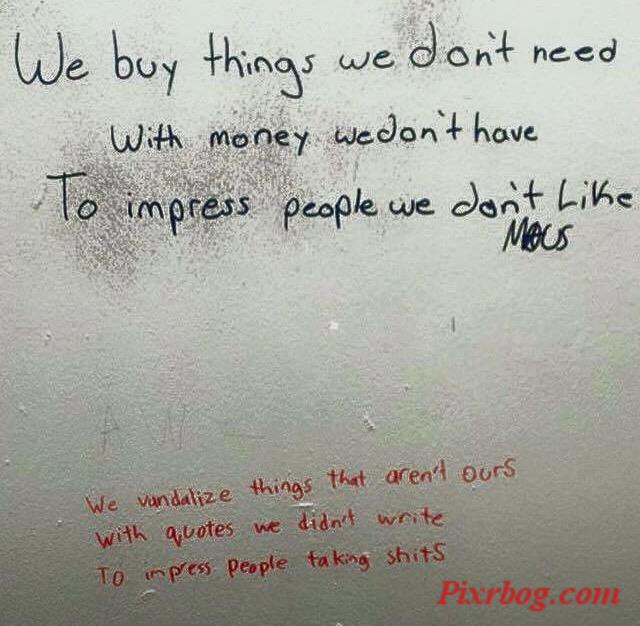 We buy things we don't need
With money we don't have
To impress people we don't Like
We vandalize things that aren't ours
with quotes we didn't write
To impress people taking shits
Pixrbog.com